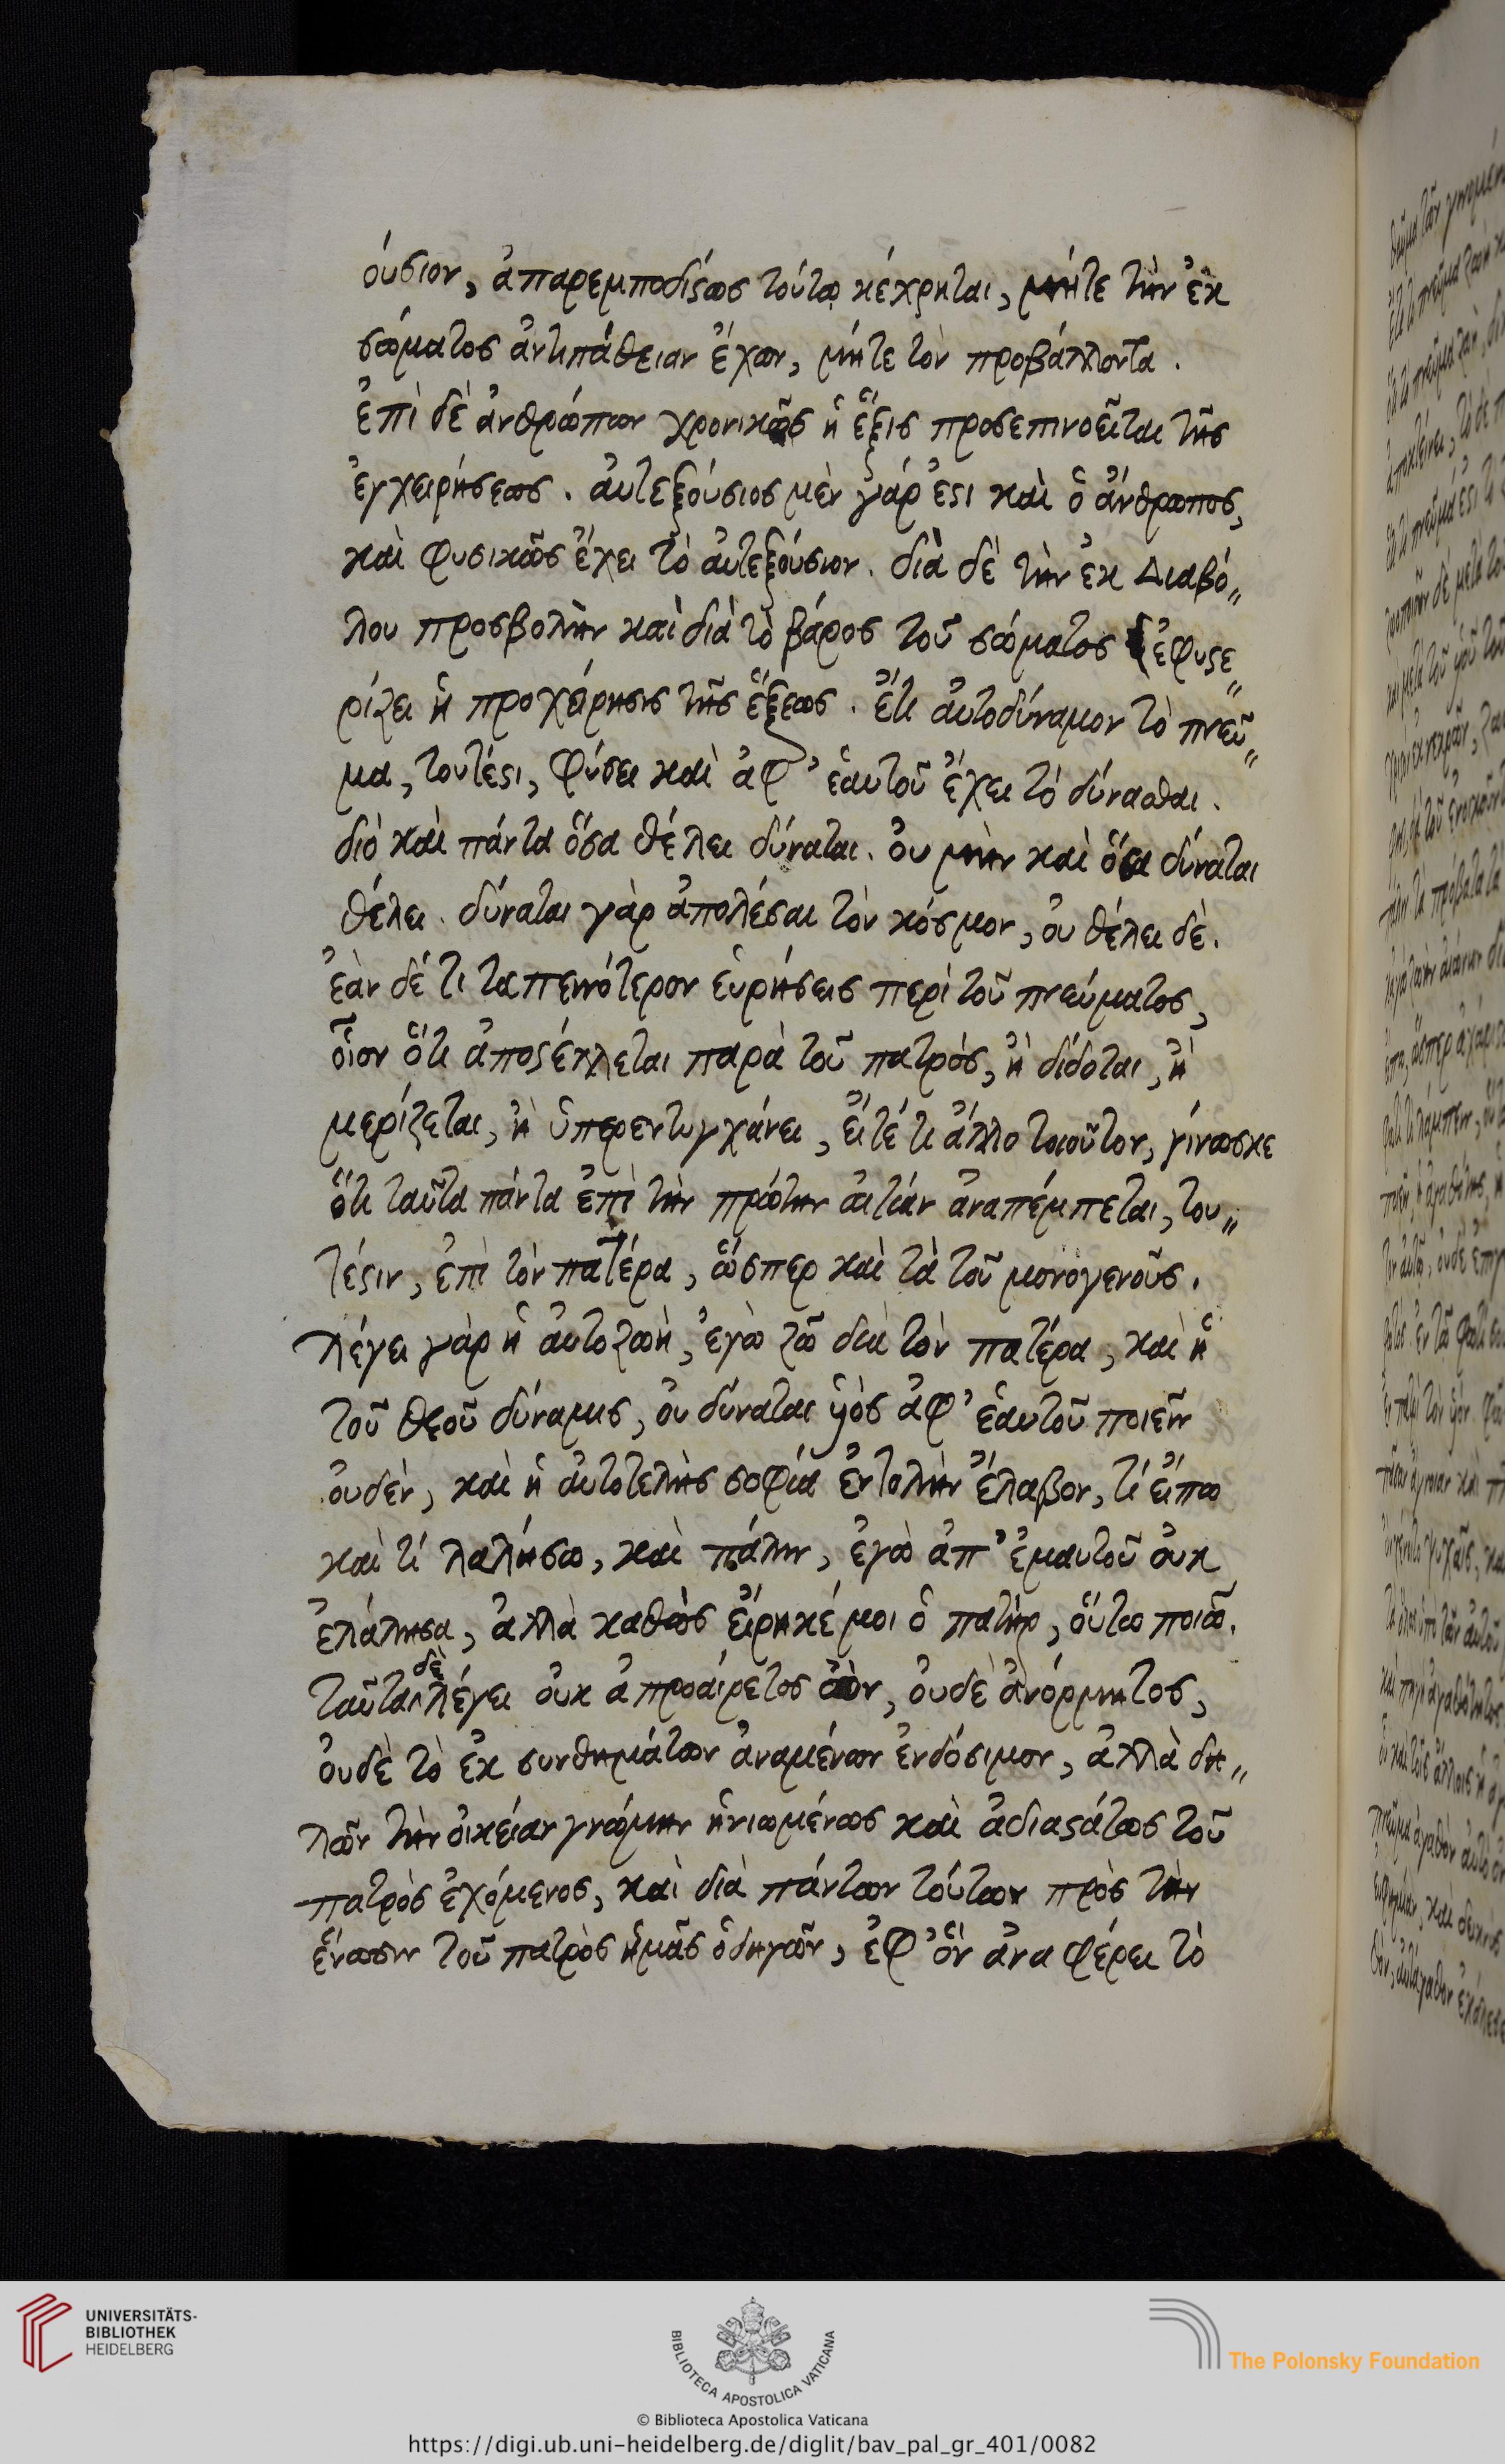 ούσιον, ἀπαρεμποδίϛως τούτῳ κέχρηται, μήτε τὴν ἐκ
σώματος ἀντιπάθειαν ἔχων, μήτε τὸν προβάλλοντα.
ἐπὶ δὲ ἀνθρώπων χρονικῶς ἡ ἕξις προσεπινοεῖται τῆς
ἐγχειρήσεως. ἀυτεξούσιος μὲν γάρ ἐϛι καὶ ὁ ἄνθρωπος,
καὶ φυσικῶς ἔχει τὸ ἀυτεξούσιον. διὰ δὲ τὴν ἐκ Διαβό„
λου προσβολὴν καὶ διὰ τὸ βάρος τοῦ σώματος ἐφυϛε„
ρίζει ἡ προχείρησις τῆς ἕξεως. ἔτι ἀυτοδύναμον τὸ πνεῦ„
μα, τουτέϛι, φύσει καὶ ἀφ' ἑαυτοῦ ἔχει τὸ δύνασθαι.
διὸ καὶ πάντα ὅσα θέλει δύναται. ὀυ μὴν καὶ ὅσα δύναται
θέλει. δύναται γὰρ ἀπολέσαι τὸν κόσμον, ὀυ θέλει δὲ.
ἐὰν δέ τι ταπεινότερον ἑυρήσεις περὶ τοῦ πνεύματος,
οἷον ὅτι ἀποϛέλλεται παρὰ τοῦ πατρός, ἢ δίδοται, ἢ
μερίζεται, ἢ ὑπερεντυγχάνει, ἔιτέ τι ἄλλο τοιοῦτον, γίνωσκε
ὅτι ταῦτα πάντα ἐπὶ τὴν πρώτην ἀιτίαν ἀναπέμπεται, του„
τέϛιν, ἐπὶ τὸν πατέρα, ὥσπερ καὶ τὰ τοῦ μονογενοῦς.
λέγει γὰρ ἡ ἀυτοζωὴ, ἐγὼ ζῶ διὰ τὸν πατέρα, καὶ ἡ
τοῦ θεοῦ δύναμις, ὀυ δύναται ὑιὸς ἀφ' ἑαυτοῦ ποιεῖν
ὀυδὲν, καὶ ἡ ἀυτοτελὴς σοφία ἐντολὴν ἔλαβον, τί ἔιπω
καὶ τί λαλήσω, καὶ πάλιν, ἐγὼ ἀπ' ἐμαυτοῦ ὀυκ
ἐλάλησα, ἀλλὰ καθὼς ἔιρηκέ μοι ὁ πατὴρ, ὅυτω ποιῶ.
ταῦτα δὲ λέγει ὀυκ ἀπροαίρετος ὢν, ὀυδὲ ἀνόρμητος,
ὀυδὲ τὸ ἐκ συνθημάτων ἀναμένων ἐνδόσιμον, ἀλλὰ δη„
λῶν τὴν ὀικείαν γνώμην ἡνιωμένως καὶ ἀδιαϛάτως τοῦ
πατρὸς ἐχόμενος, καὶ διὰ πάντων τούτων πρὸς τὴν
ἕνωσιν τοῦ πατρὸς ἡμᾶς ὁδηγῶν, ἐφ' ὃν ἀναφέρει τὸ
UNIVERSITÄTS-
BIBLIOTHEK
HEIDELBERG
BIBLIOTECA APOSTOLICA VATICANA
The Polonsky Foundation
© Biblioteca Apostolica Vaticana
https://digi.ub.uni-heidelberg.de/diglit/bav_pal_gr_401/0082